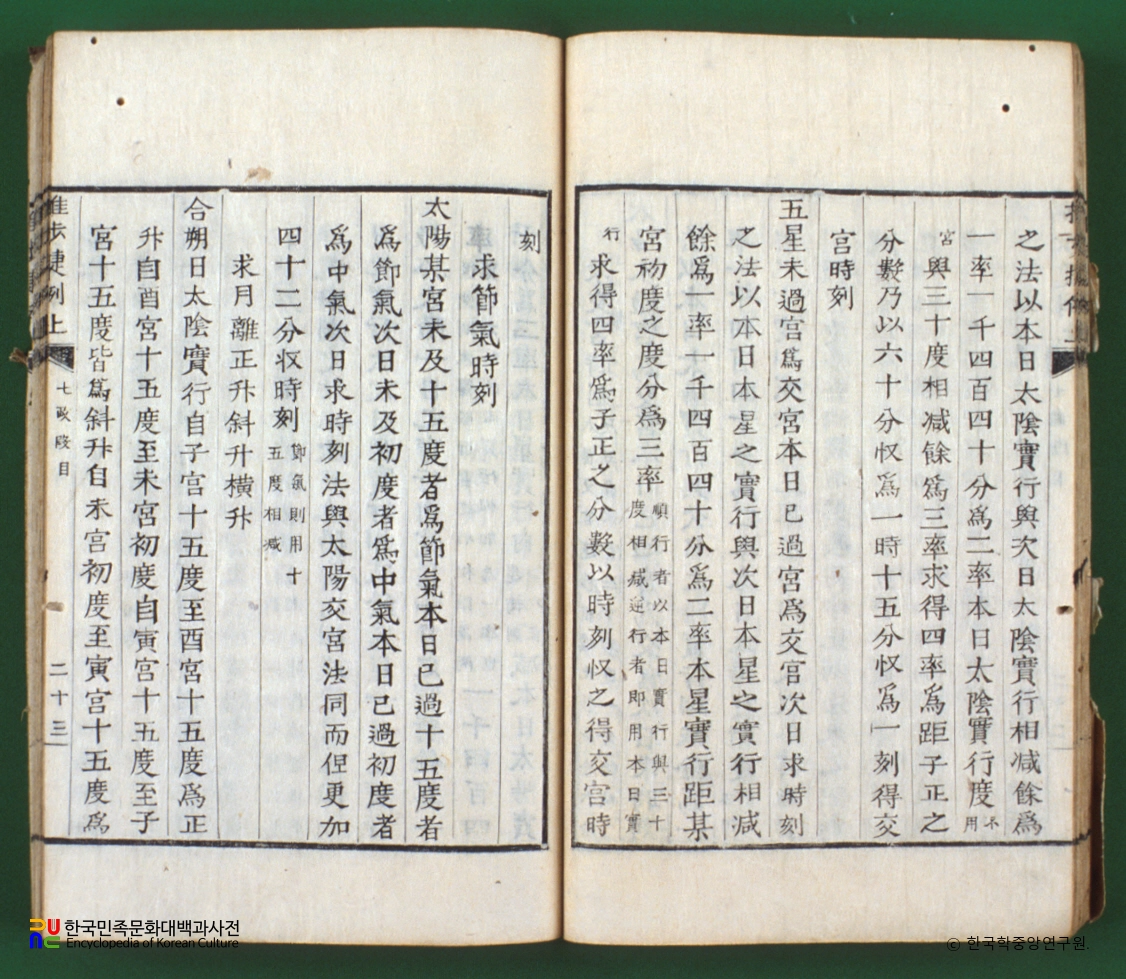 之法以本日太陰實行與次日太陰實行相减餘爲
一率一千四百四十分爲二率本日太陰實行度不用
宮與三十度相减餘爲三率求得四率爲距子正之
分數乃以六十分収爲一時十五分収爲一刻得交
宮時刻
五星未過宮爲交宮本日已過宮爲交官次日求時刻
之法以本日本星之實行與次日本星之實行相減
餘爲一率一千四百四十分爲二率本星實行距某
宮初度之度分爲三率順行者以本日實行與三十度相減逆行者即用本日實
行
求得四率爲子正之分數以時刻収之得交宮時
刻
求節氣時刻
太陽某宮未及十五度者爲節氣本日已過十五度者
爲節氣次日未及初度者爲中氣本日已過初度者
爲中氣次日求時刻法與太陽交宮法同而但更加
四十二分収時刻節氣則用十五度相减
求月離正升斜升横升
合朔日太陰實行自子宮十五度至酉宮十五度爲正
升自酉宮十五度至未宮初度自寅宮十五度至子
宮十五度皆爲斜升自未宮初度至寅宮十五度爲
推步捷例上 七政段目 二十三
한국민족문화대백과사전
Encyclopedia of Korean Culture
© 한국학중앙연구원